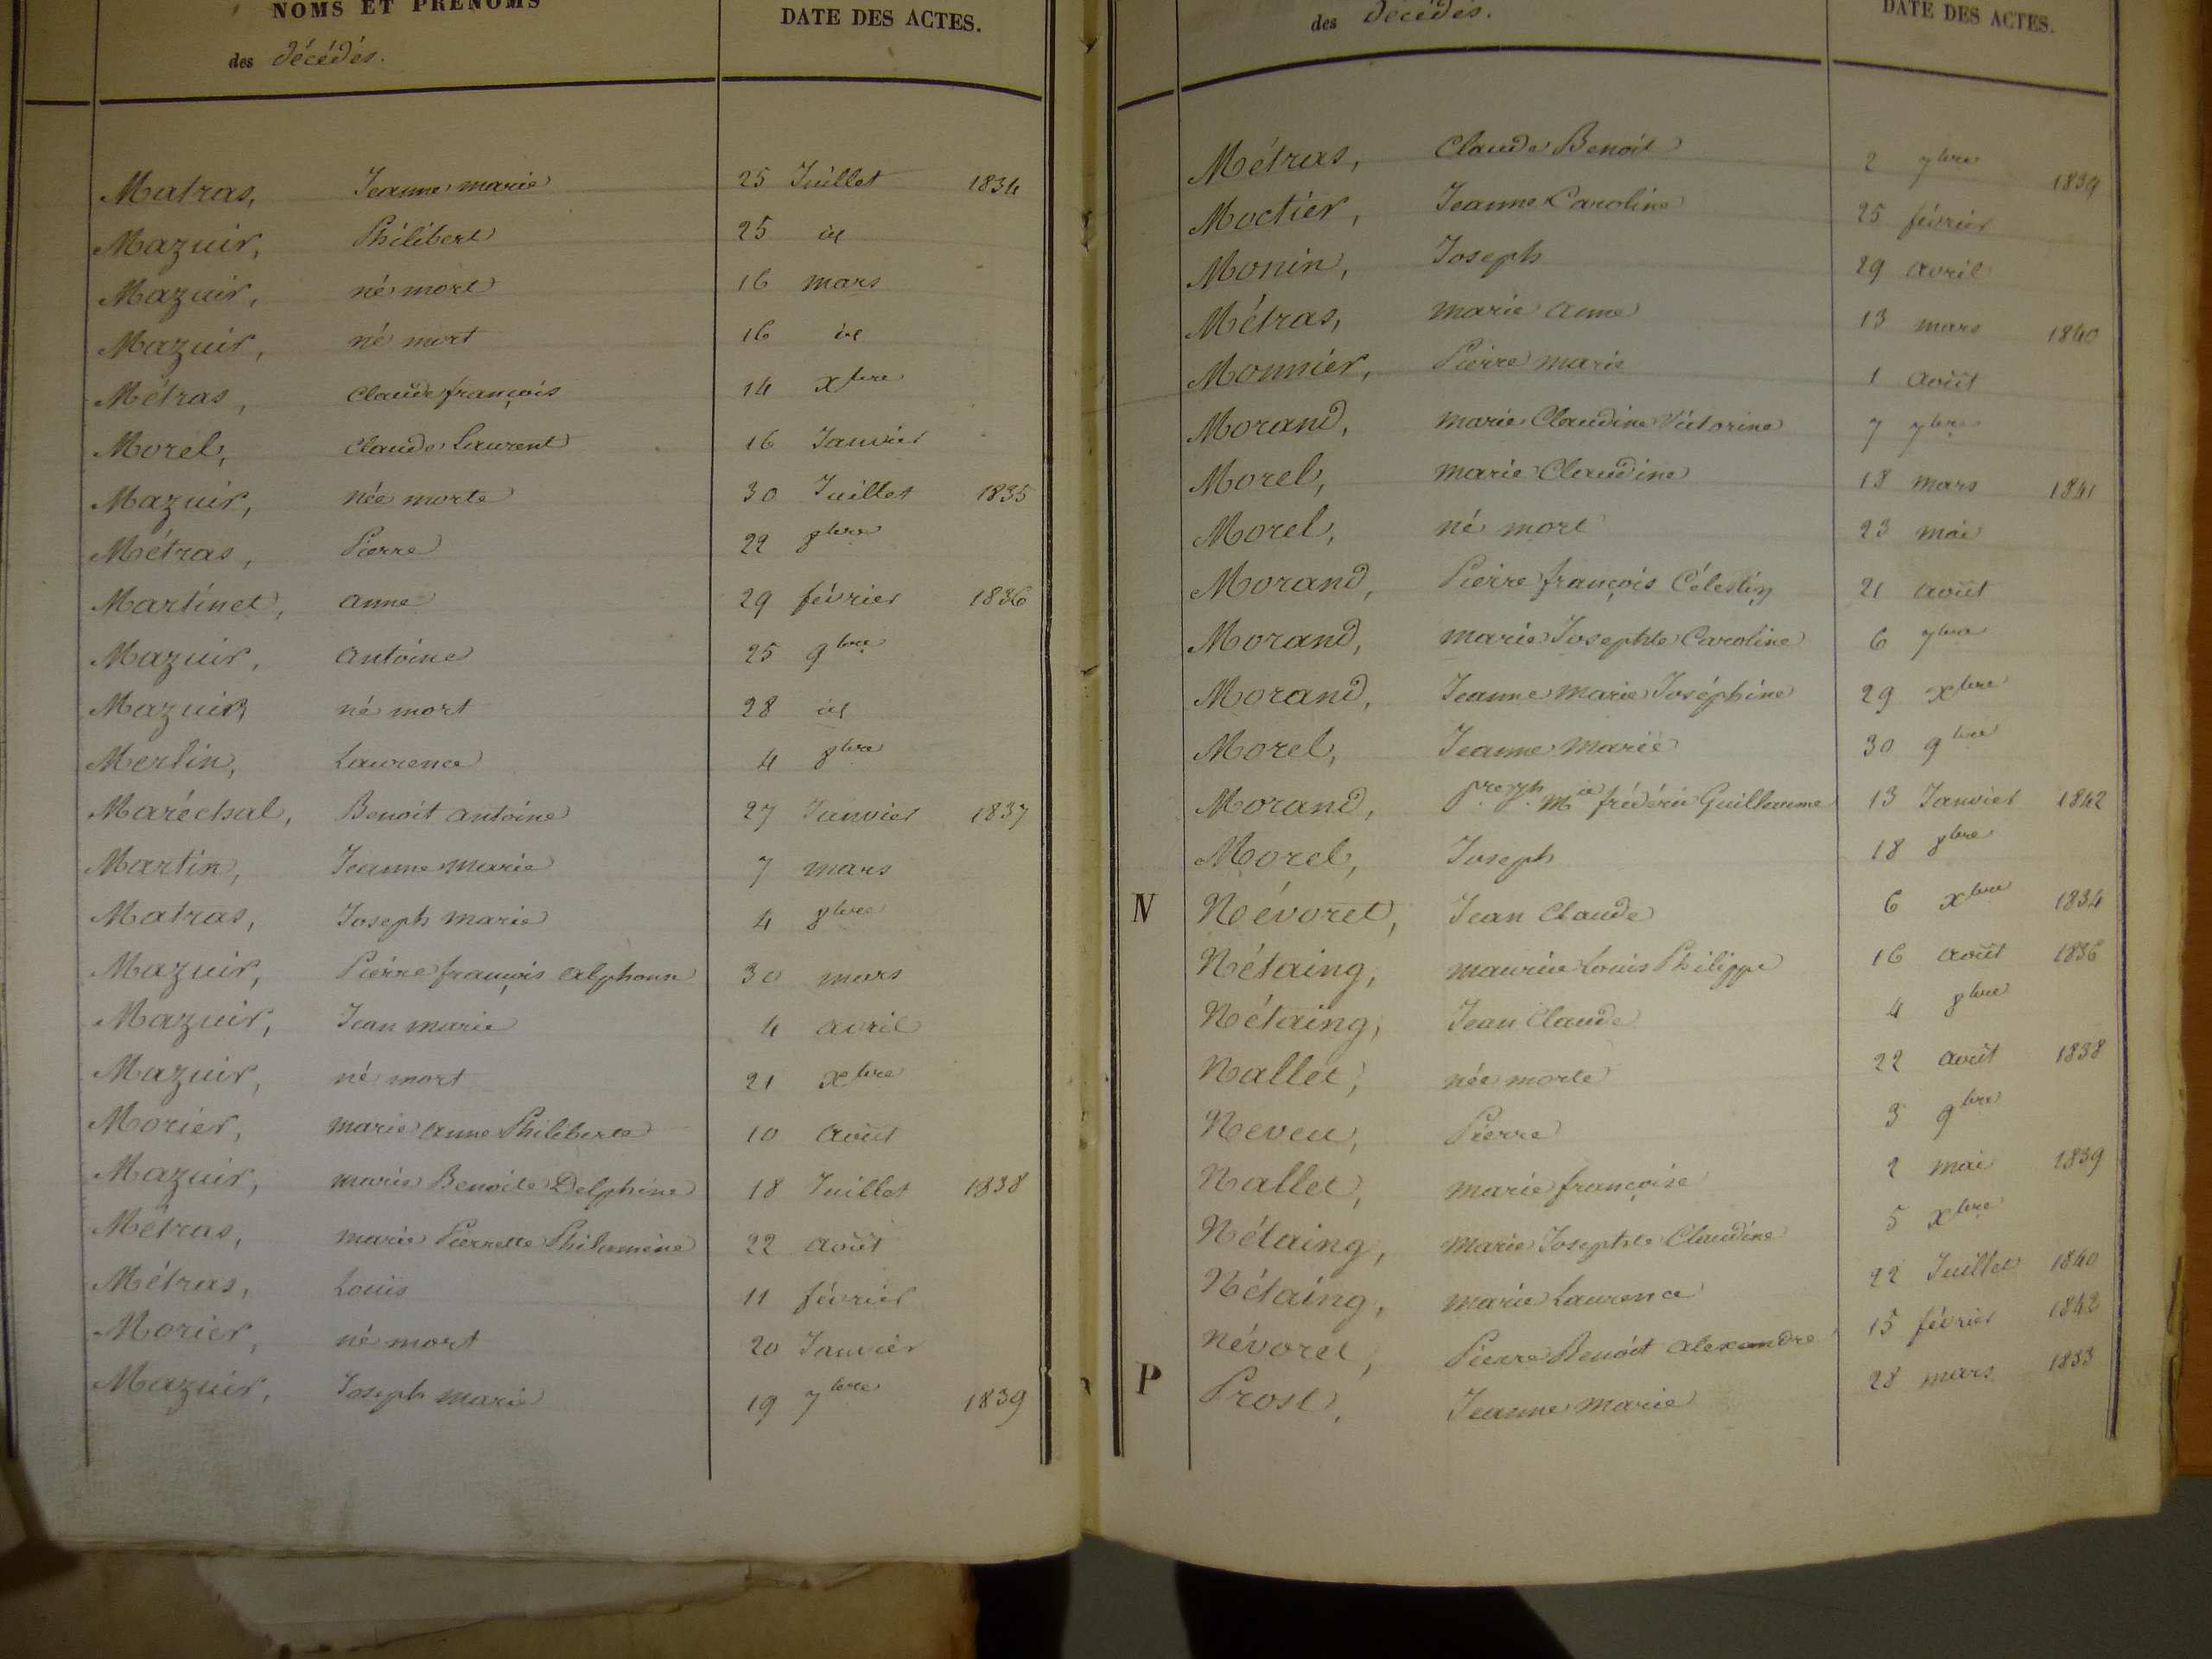 NOMS ET PRÉNOMS
des décédés.
DATE DES ACTES.
Matras, Jeanne marie 25 Juillet 1834
Mazuir, Philibert 25 id
Mazuir, né mort 16 mars
Mazuir, né mort 16 id
Métras, Claude françois 14 xbre
Morel, Claude Laurent 16 Janvier
Mazuir, née morte 30 Juillet 1835
Métras, Pierre 22 8bre
Martinet, anne 29 février 1836
Mazuir, antoine 25 9bre
Mazuir, né mort 28 id
Merlin, Laurence 4 8bre
Maréchal, Benoit antoine 27 Janvier 1837
Martin, Jeanne marie 7 mars
Matras, Joseph marie 4 8bre
Mazuir, Pierre françois alphonse 30 mars
Mazuir, Jean marie 4 avril
Mazuir, né mort 21 xbre
Morier, marie anne Philiberte 10 août
Mazuir, marie Benoite Delphine 18 Juillet 1838
Métras, marie Pierrette Philomène 22 août
Métras, Louis 11 février
Morier, né mort 20 Janvier
Mazuir, Joseph marie 19 7bre 1839
des décédés.
DATE DES ACTES.
Métras, Claude Benoit 2 7bre 1839
Moctier, Jeanne Caroline 25 février
Monin, Joseph 29 avril
Métras, marie anne 13 mars 1840
Monnier, Pierre marie 1 août
Morand, marie Claudine Victorine 7 7bre
Morel, marie Claudine 18 mars 1841
Morel, né mort 23 mai
Morand, Pierre françois Célestin 21 août
Morand, marie Josephte Caroline 6 7bre
Morand, Jeanne marie Joséphine 29 xbre
Morel, Jeanne marie 30 9bre
Morand, Mie frédéric Guillaume 13 Janvier 1842
Morel, Joseph 18 8bre
N Névoret, Jean Claude 6 xbre 1834
Nétaing, maurice Louis Philippe 16 août 1836
Nétaing, Jean Claude 4 8bre
Nallet, née morte 22 août 1838
Neveu, Pierre 3 9bre
Nallet, marie françoise 2 mai 1839
Nétaing, marie Josephte Claudine 5 xbre
Nétaing, marie Laurence 22 Juillet 1840
Névoret, Pierre Benoit alexandre 15 février 1842
P Prost, Jeanne marie 28 mars 1833